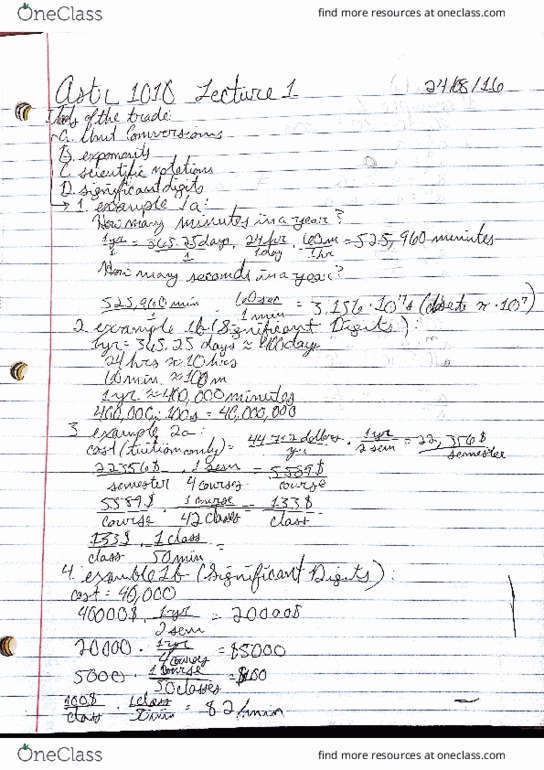 OneClass
find more resources at oneclass.com
Astr 1010 Lecture 1
24/8/16
Tools of the trade:
A. Unit Conversions
B. exponents
C. scientific notations
D. significant digits
→ 1. example 1a:
How many minutes in a year?
1yr = 365.25 days · 24 hr / 1 day · 60 m / 1 hr = 525,960 minutes
How many seconds in a year?
525,960 min / 1 · 60 sec / 1 min = 3.156 · 10^7 s (close to π · 10^7)
2. example 1b (Significant Digits):
1yr = 365.25 days ≈ 400 days
24 hrs ≈ 10 hrs
60 min ≈ 100 m
1 yr ≈ 400,000 minutes
400,000 · 100s = 40,000,000
3. example 2a:
cost (tuition only) = 44 712 dollars / yr · 1 yr / 2 sem = 22,356$ / semester
22356$ / semester · 1 sem / 4 courses = 5589$ / course
5589$ / course · 1 course / 42 classes = 133$ / class
133$ / class · 1 class / 50 min =
4. example 2b (Significant Digits):
cost = 40,000
40000$ · 1 yr / 2 sem = 20000$
20000 · 1 / 4 courses = $5000
5000 · 1 course / 50 classes = $100
100$ / class · 1 class / 50 min = $2/min
OneClass
find more resources at oneclass.com